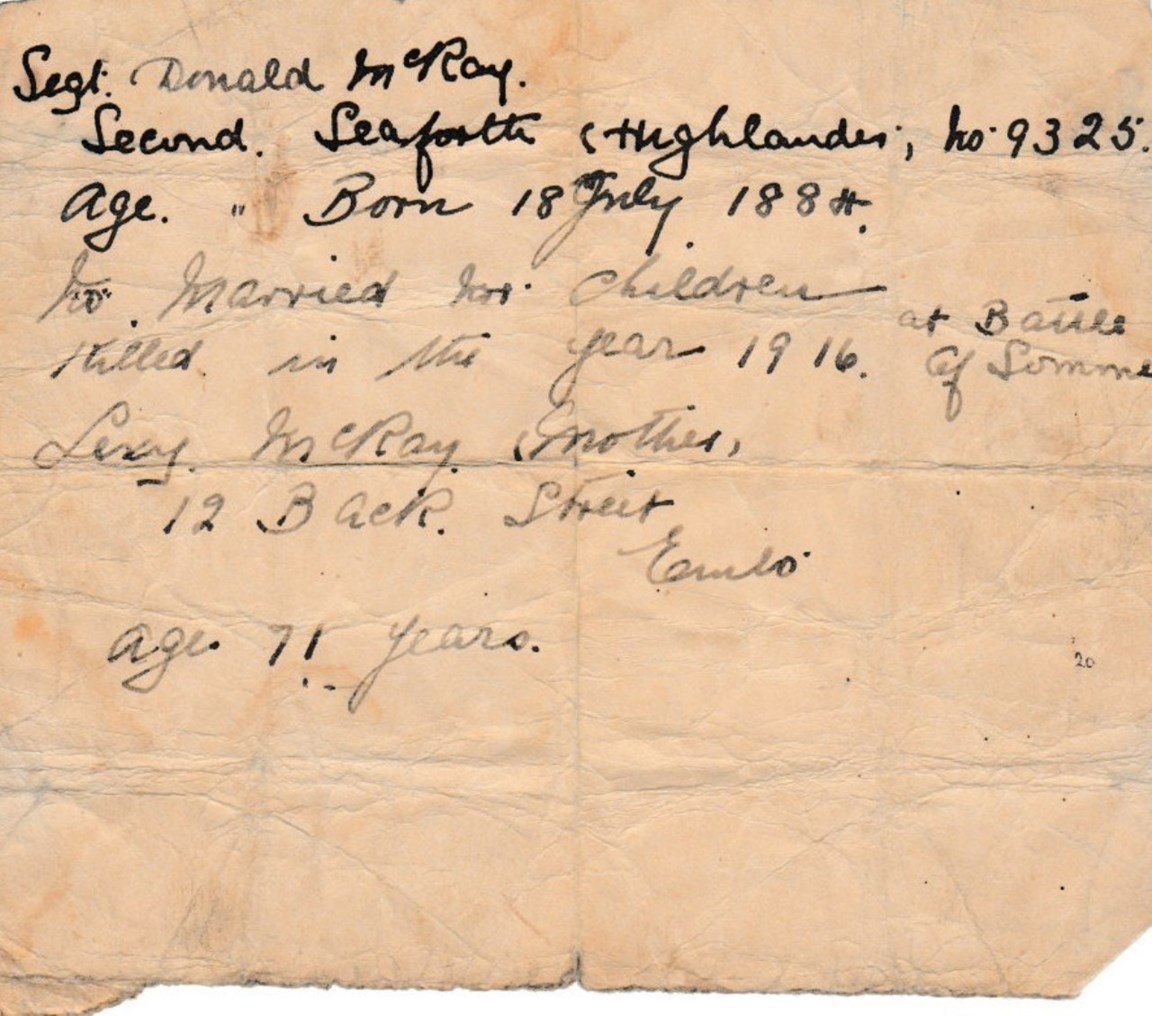 Segt. Donald McKay.
Second. Seaforth (Highlander, No. 9325.
Age. " Born 18 July 1884.
No. Married no. children
Killed in the year 1916. at Battle of Somme
Lexy. McKay (mother,
12 Back. Street
Embo
Age. 71 years.
20